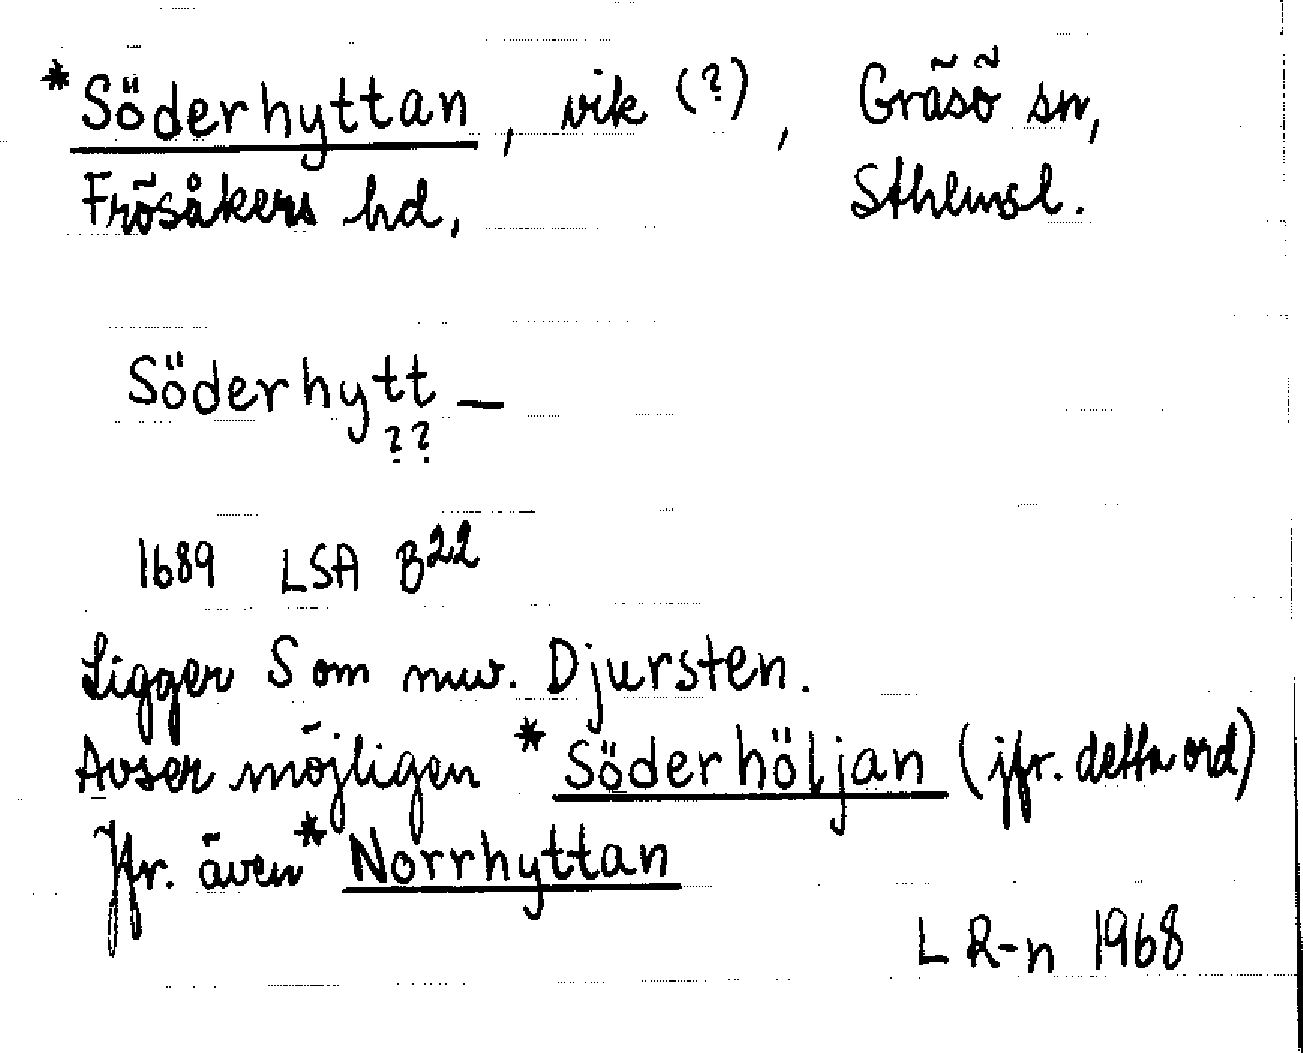 *Söderhyttan, vik (?), Gräsö sn,
Frösåkers hd, Sthlmsl.
Söderhytt —
??
1689 LSA B22
Ligger S om nuv. Djursten.
Avser möjligen *Söderhöljan (jfr. detta ord)
Jfr. även *Norrhyttan
L R-n 1968